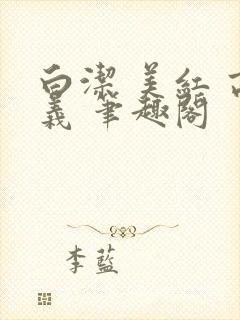 白潔 美紅 高
義 筆趣閣
李藍